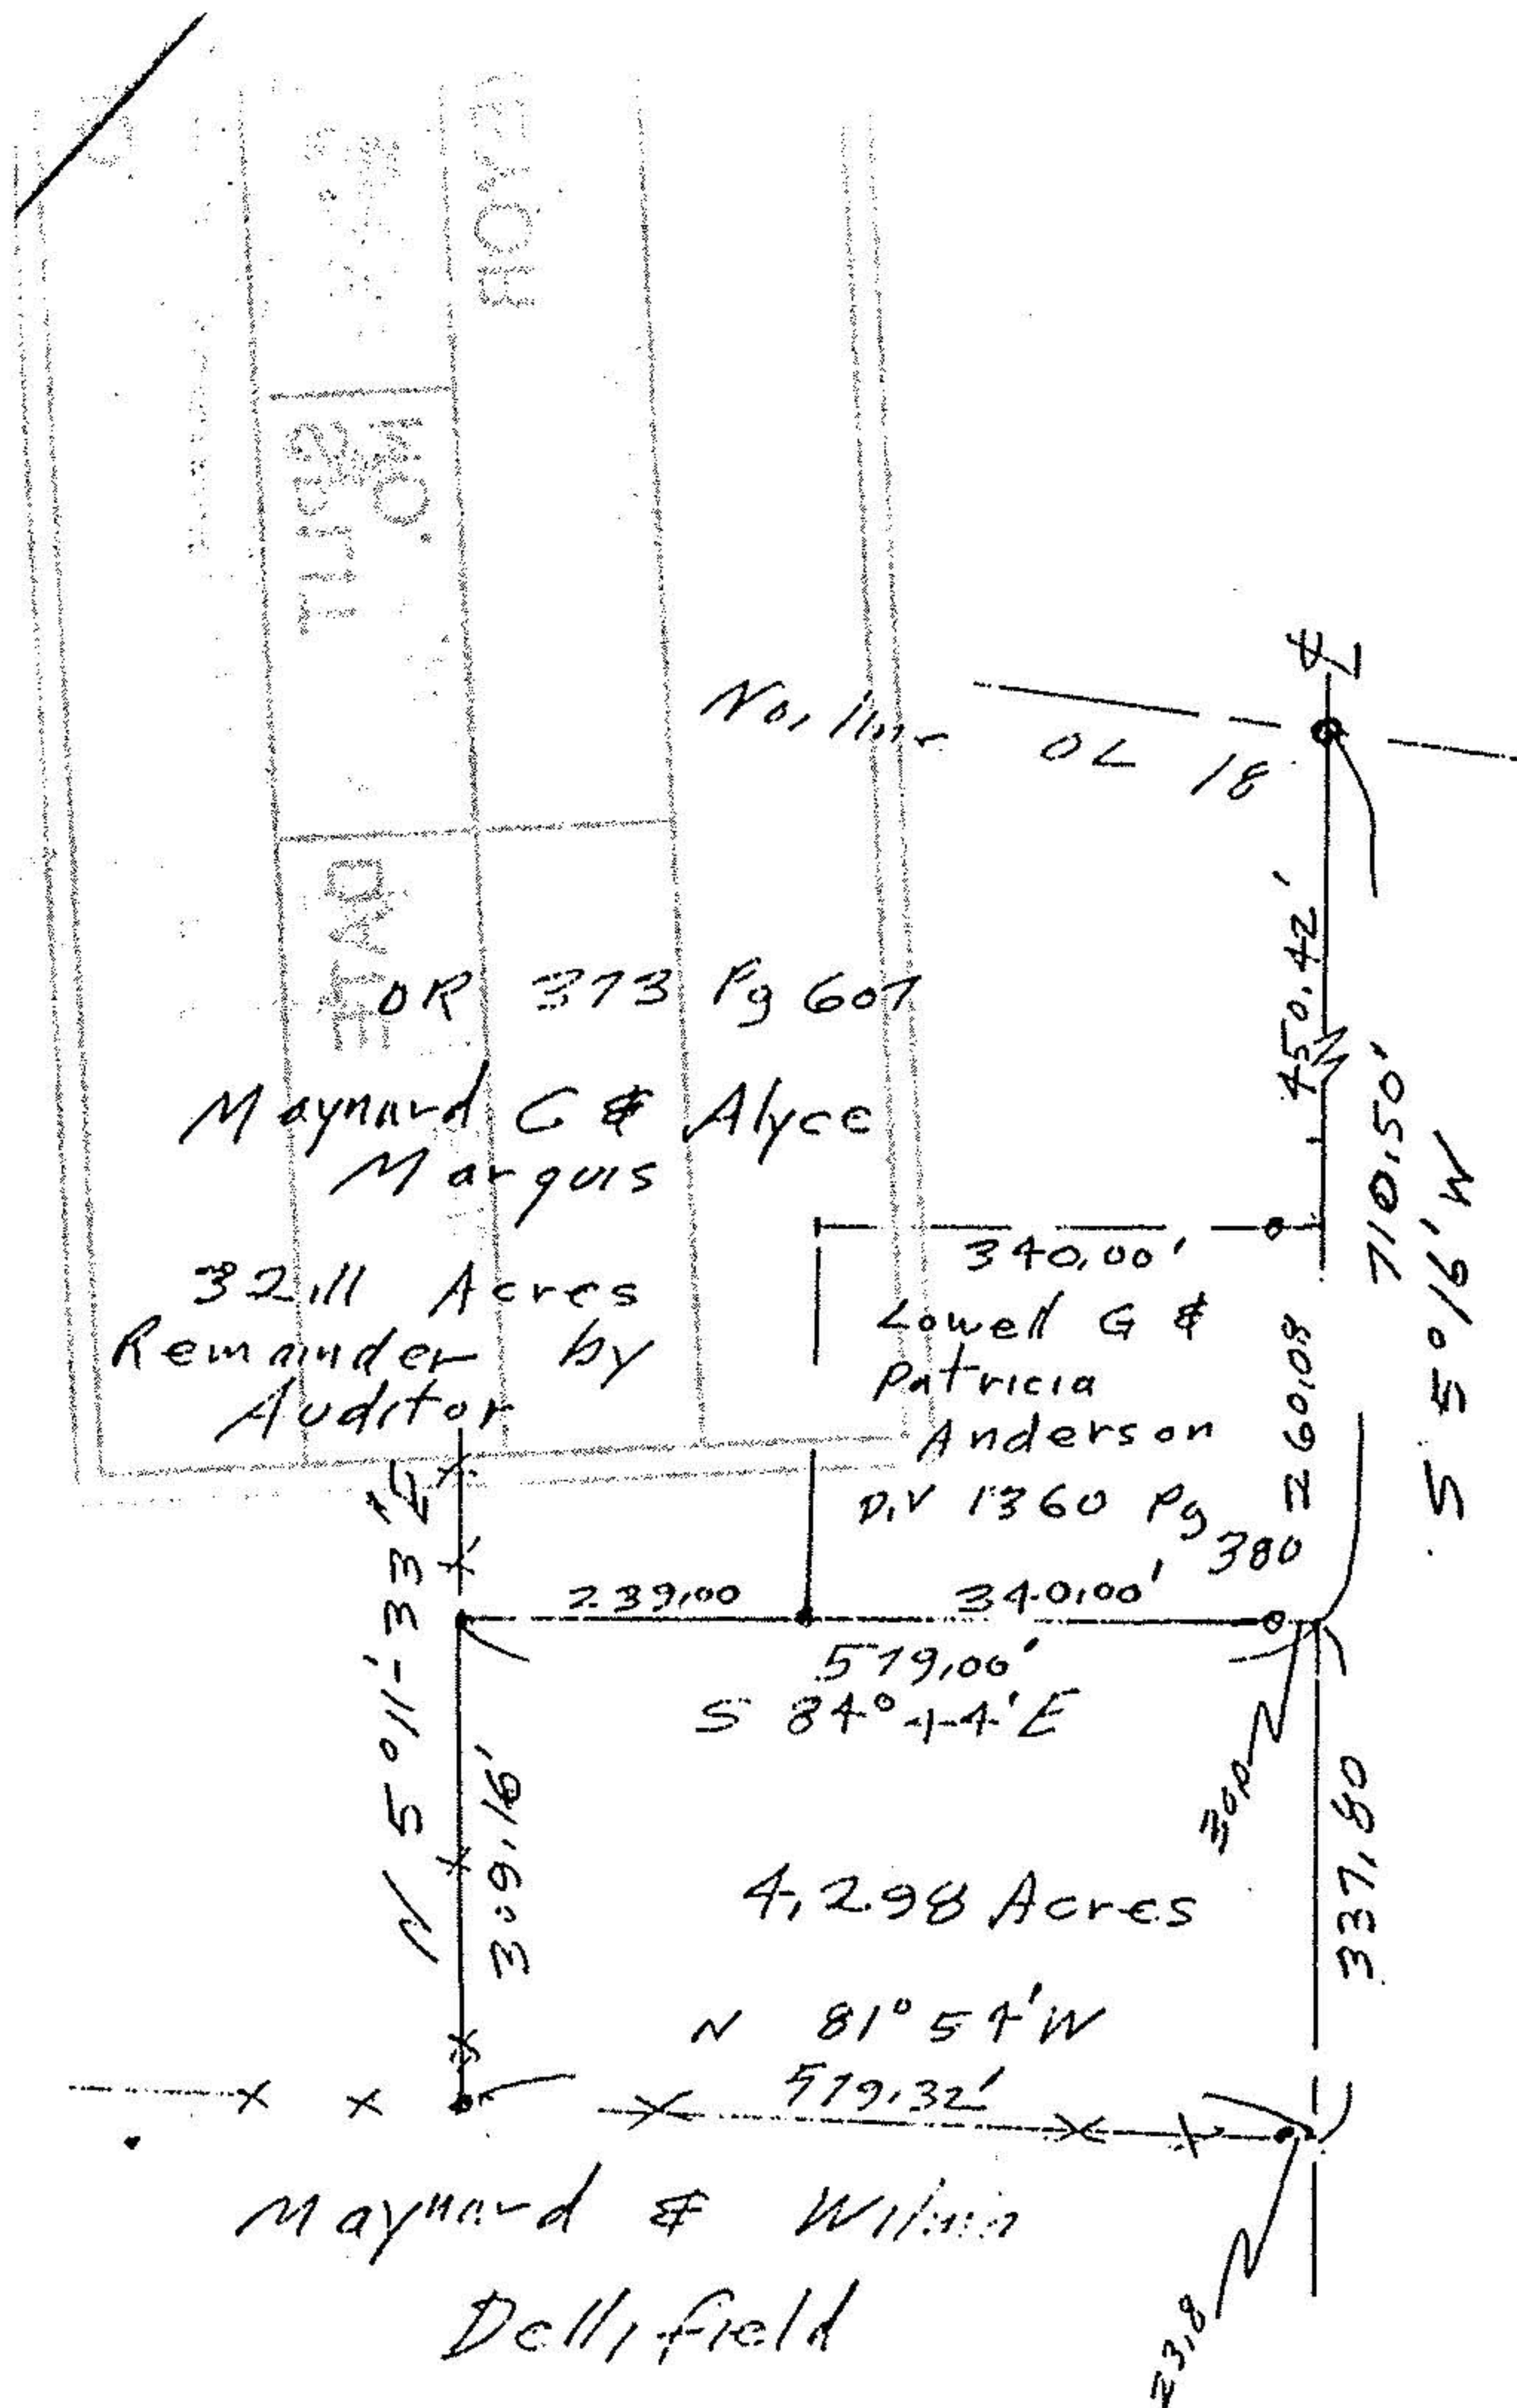 ROYEV
SPLIT
.OM
DATE
℄
No. line OL 18
450.42'
710.50'
S 5°16'W
OR 373 Pg 607
Maynard C & Alyce
Marquis
32.11 Acres
Remainder by
Auditor
340.00'
Lowell G &
Patricia
Anderson
D.V 1360 Pg
380
260.08
N 5°11'-33 1/2"
239.00
340.00'
579.00'
S 84°44'E
30.0
309.16'
4.298 Acres
337.80
N 81°54'W
579.32'
Maynard & Wilma
Dellifield
23.8